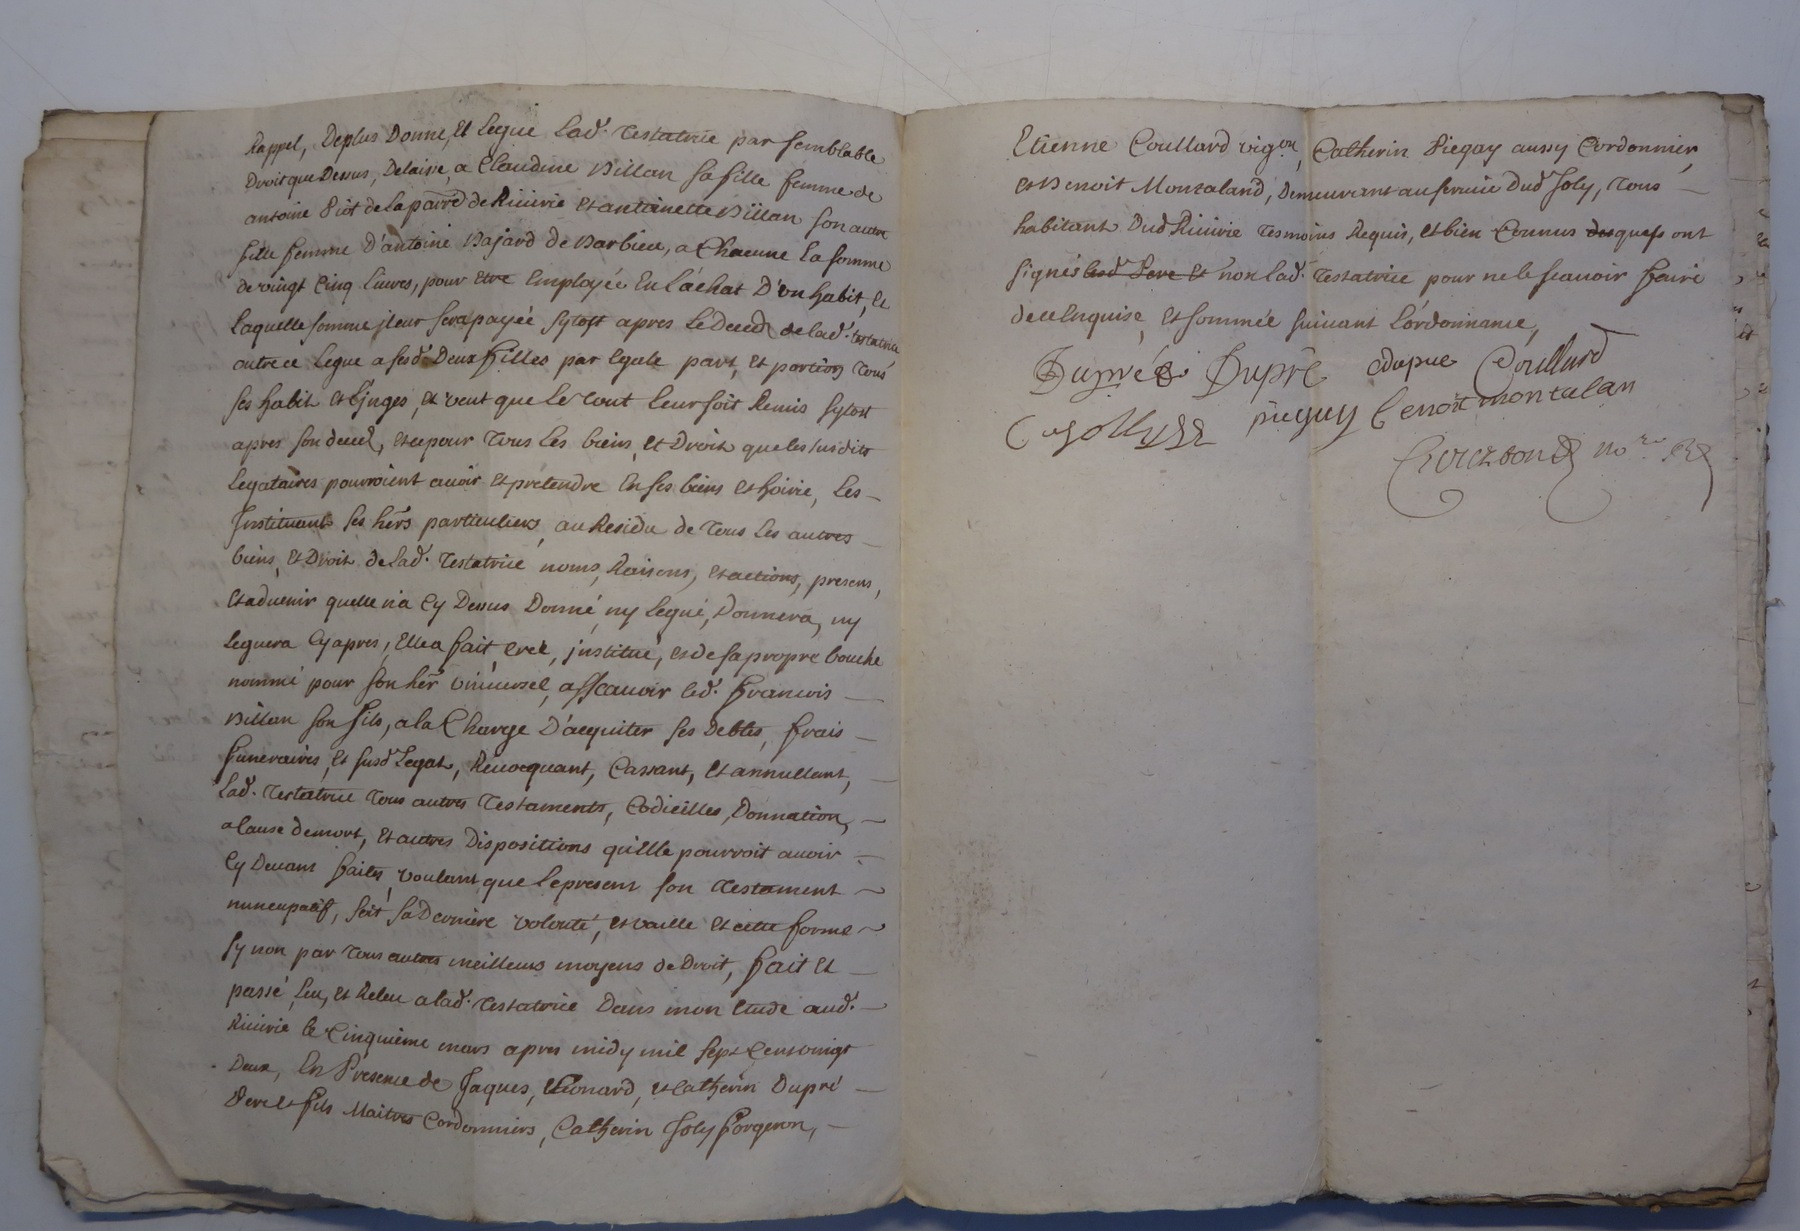 Rappel, Deplus Donne, Et Legue Lad. Testatrice par semblable
Droit que Dessus, Delaisse, a Claudine Billan sa fille femme de
antoine Piot de la parrö de Riuirie et antoinette Billan son autre
fille femme D'antoine Bajard de Barbieu, a Chacune la somme
de vingt Cinq Liures, pour etre Employée En L'achat D'un habit, Et
Laquelle somme jleur sera payée sytost apres Le Deced de Lad. testatrice
outre ce Legue a sesd. Deux filles par Egale part, Et portion Tous
ses habit et Ljnges, Et veut que Le Tout Leur soit Remis sytost
apres son deced, Et ce pour Tous Les biens, Et Droit que les susdits
Legataires pourroient auoir Et pretendre En ses biens Et hoirie, Les
Jnstituant ses hērs particuliers, au Residu de Tous Les autres
biens, Et Droit de Lad. Testatrice noms, Raisons, Et actions, presens,
Et aduenir quelle n'a Cy Dessus Donné, ny Legué, Donnera, ny
Leguera Cy apres, Elle a fait, creé, jnstitué, et de sa propre bouche
nommé pour son hēr vniuersel, assçauoir led. francois
Billan son fils, a la Charge D'acquiter ses Debtes, frais
funeraires, Et susd. Legat, Reuocquant, Cassant, Et annullant,
Lad. Testatrice Tous autres Testaments, Codicilles, Donnation,
a Cause de mort, Et autres Dispositions qu'Elle pourroit auoir
Cy Deuant faites, voulant que Le present son Testament
nuncupatif, soit sa Derniere volonté, et vaille Et cette forme
sy non par Tous autres meilleurs moyens de Droit, fait Et
passé, Leu, Et Releu a lad. Testatrice Dans mon Etude aud.
Riuirie le Cinquième mars apres midy mil sept Cent vingt
Deux, En Presence de Jaques, Leonard, et Catherin Dupré
Pere et fils Maitres Cordonniers, Catherin Joly forgeron,
Etienne Coullard vigon, Catherin Piegay aussy Cordonnier,
et Benoit Montaland, Demeurant au seruice Dud. Joly, Tous
habitant Dud Riuirie Tesmoins Requis, Et bien Connus desquels ont
signés Lesd. Pere Et non Lad. Testatrice pour ne le scauoir faire
de ce Enquise, Et sommée suiuant L'ordonnance,
Dupré Dupré Coullard
C Jolly piegay benoit montalan